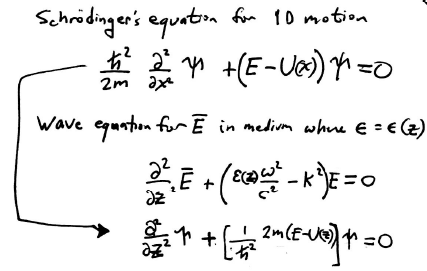 Schrödinger's equation for 1D motion
ℏ²/2m ∂²/∂x² ψ + (E - U(x)) ψ = 0
Wave equation for E̅ in medium where ϵ = ϵ(z)
∂²/∂z² E̅ + (ε(z) ω²/c² - K²) E = 0
∂²/∂z² ψ + [1/ℏ² 2m(E - U(z))] ψ = 0